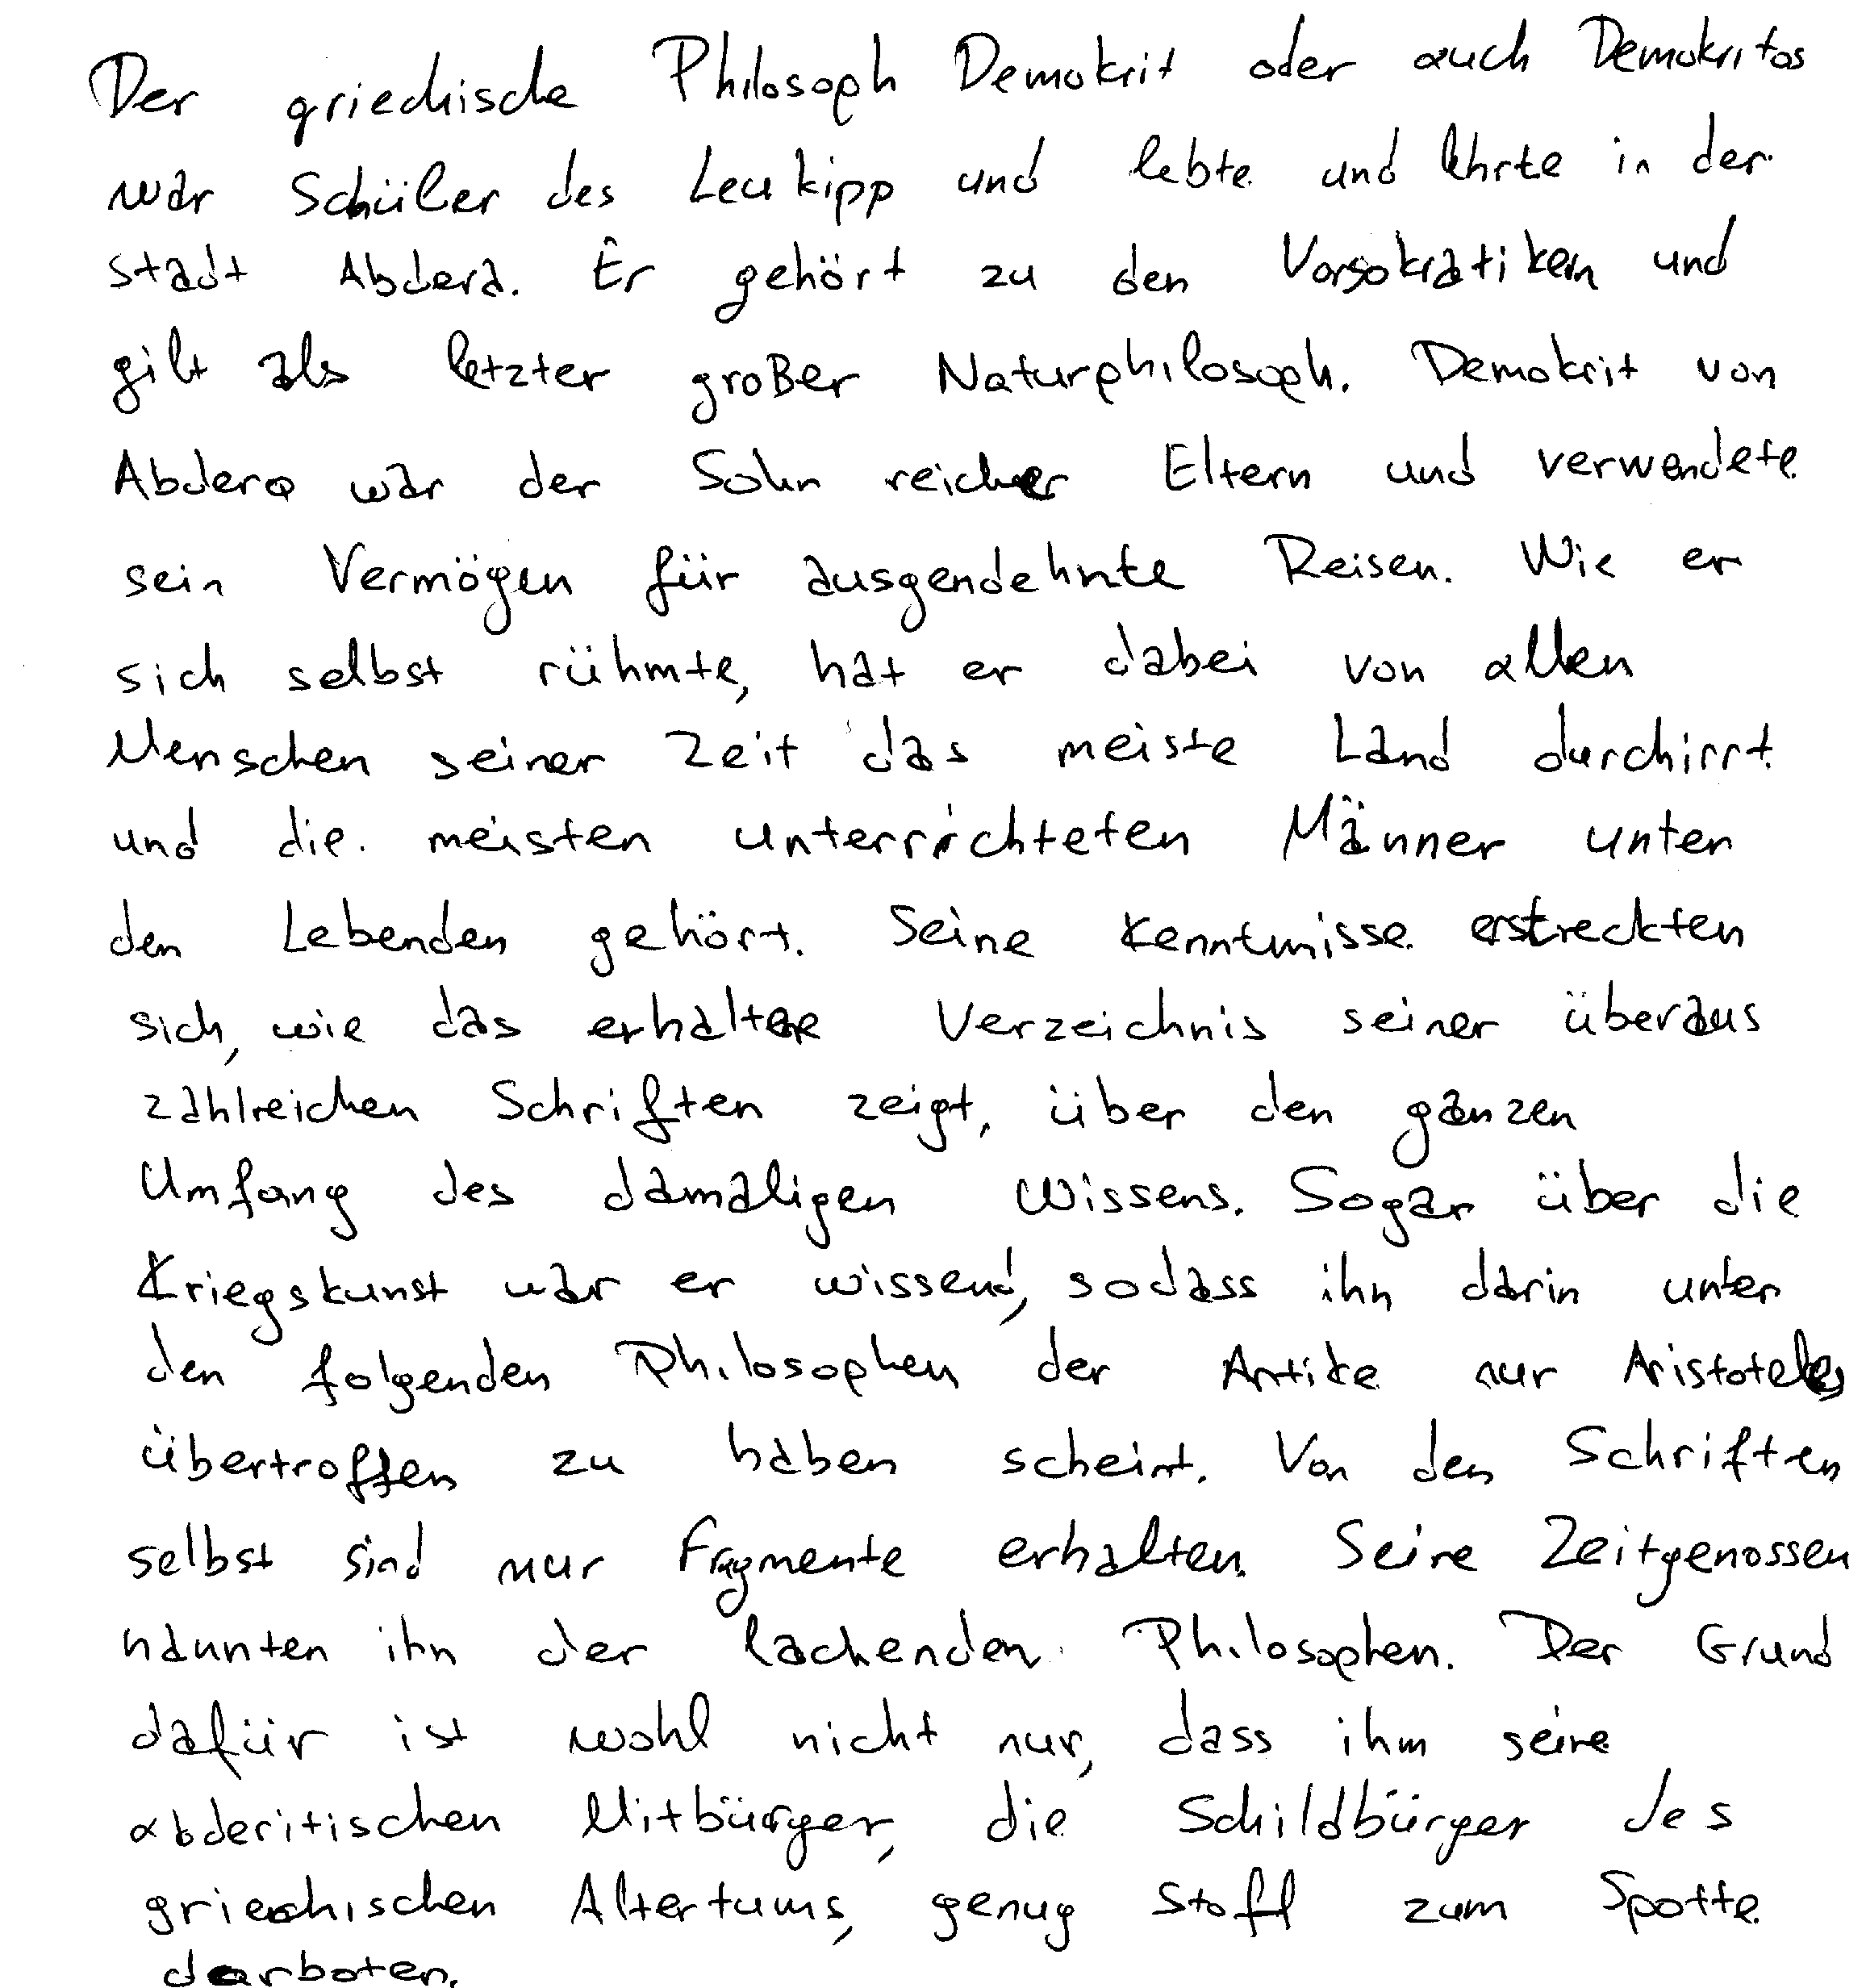 Der griechische Philosoph Demokrit oder auch Demokritos
war Schüler des Leukipp und lebte und lehrte in der
Stadt Abdera. Er gehört zu den Vorsokratikern und
gilt als letzter großer Naturphilosoph. Demokrit von
Abdera war der Sohn reicher Eltern und verwendete
sein Vermögen für ausgendehnte Reisen. Wie er
sich selbst rühmte, hat er dabei von allen
Menschen seiner Zeit das meiste Land durchirrt
und die meisten unterrichteten Männer unter
den Lebenden gehört. Seine Kenntnisse erstreckten
sich, wie das erhaltene Verzeichnis seiner überaus
zahlreichen Schriften zeigt, über den ganzen
Umfang des damaligen Wissens. Sogar über die
Kriegskunst war er wissend, sodass ihn darin unter
den folgenden Philosophen der Antike nur Aristoteles
übertroffen zu haben scheint. Von den Schriften
selbst sind nur Fragmente erhalten. Seine Zeitgenossen
nannten ihn der lachenden Philosophen. Der Grund
dafür ist wohl nicht nur, dass ihm seine
abderitischen Mitbürger, die Schildbürger des
griechischen Altertums, genug Stoff zum Spotte
darboten.